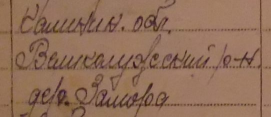 Калинин. обл.
Великолукский р-н
дер. Замород